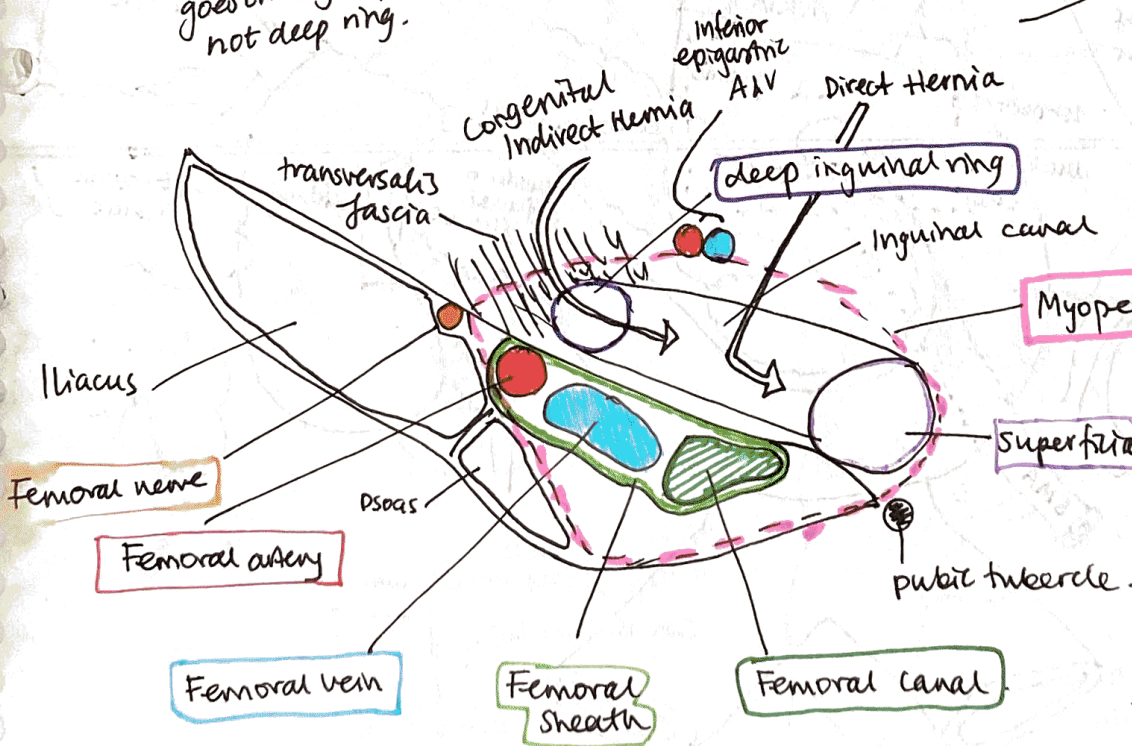 not deep ring.
Inferior
epigastric
A&V
Direct Hernia
Congenital
Indirect Hernia
deep inguinal ring
transversalis
fascia
Inguinal canal
Myope
Iliacus
superficia
Femoral nerve
psoas
Femoral artery
pubic tubercle.
Femoral vein
Femoral
sheath
Femoral canal